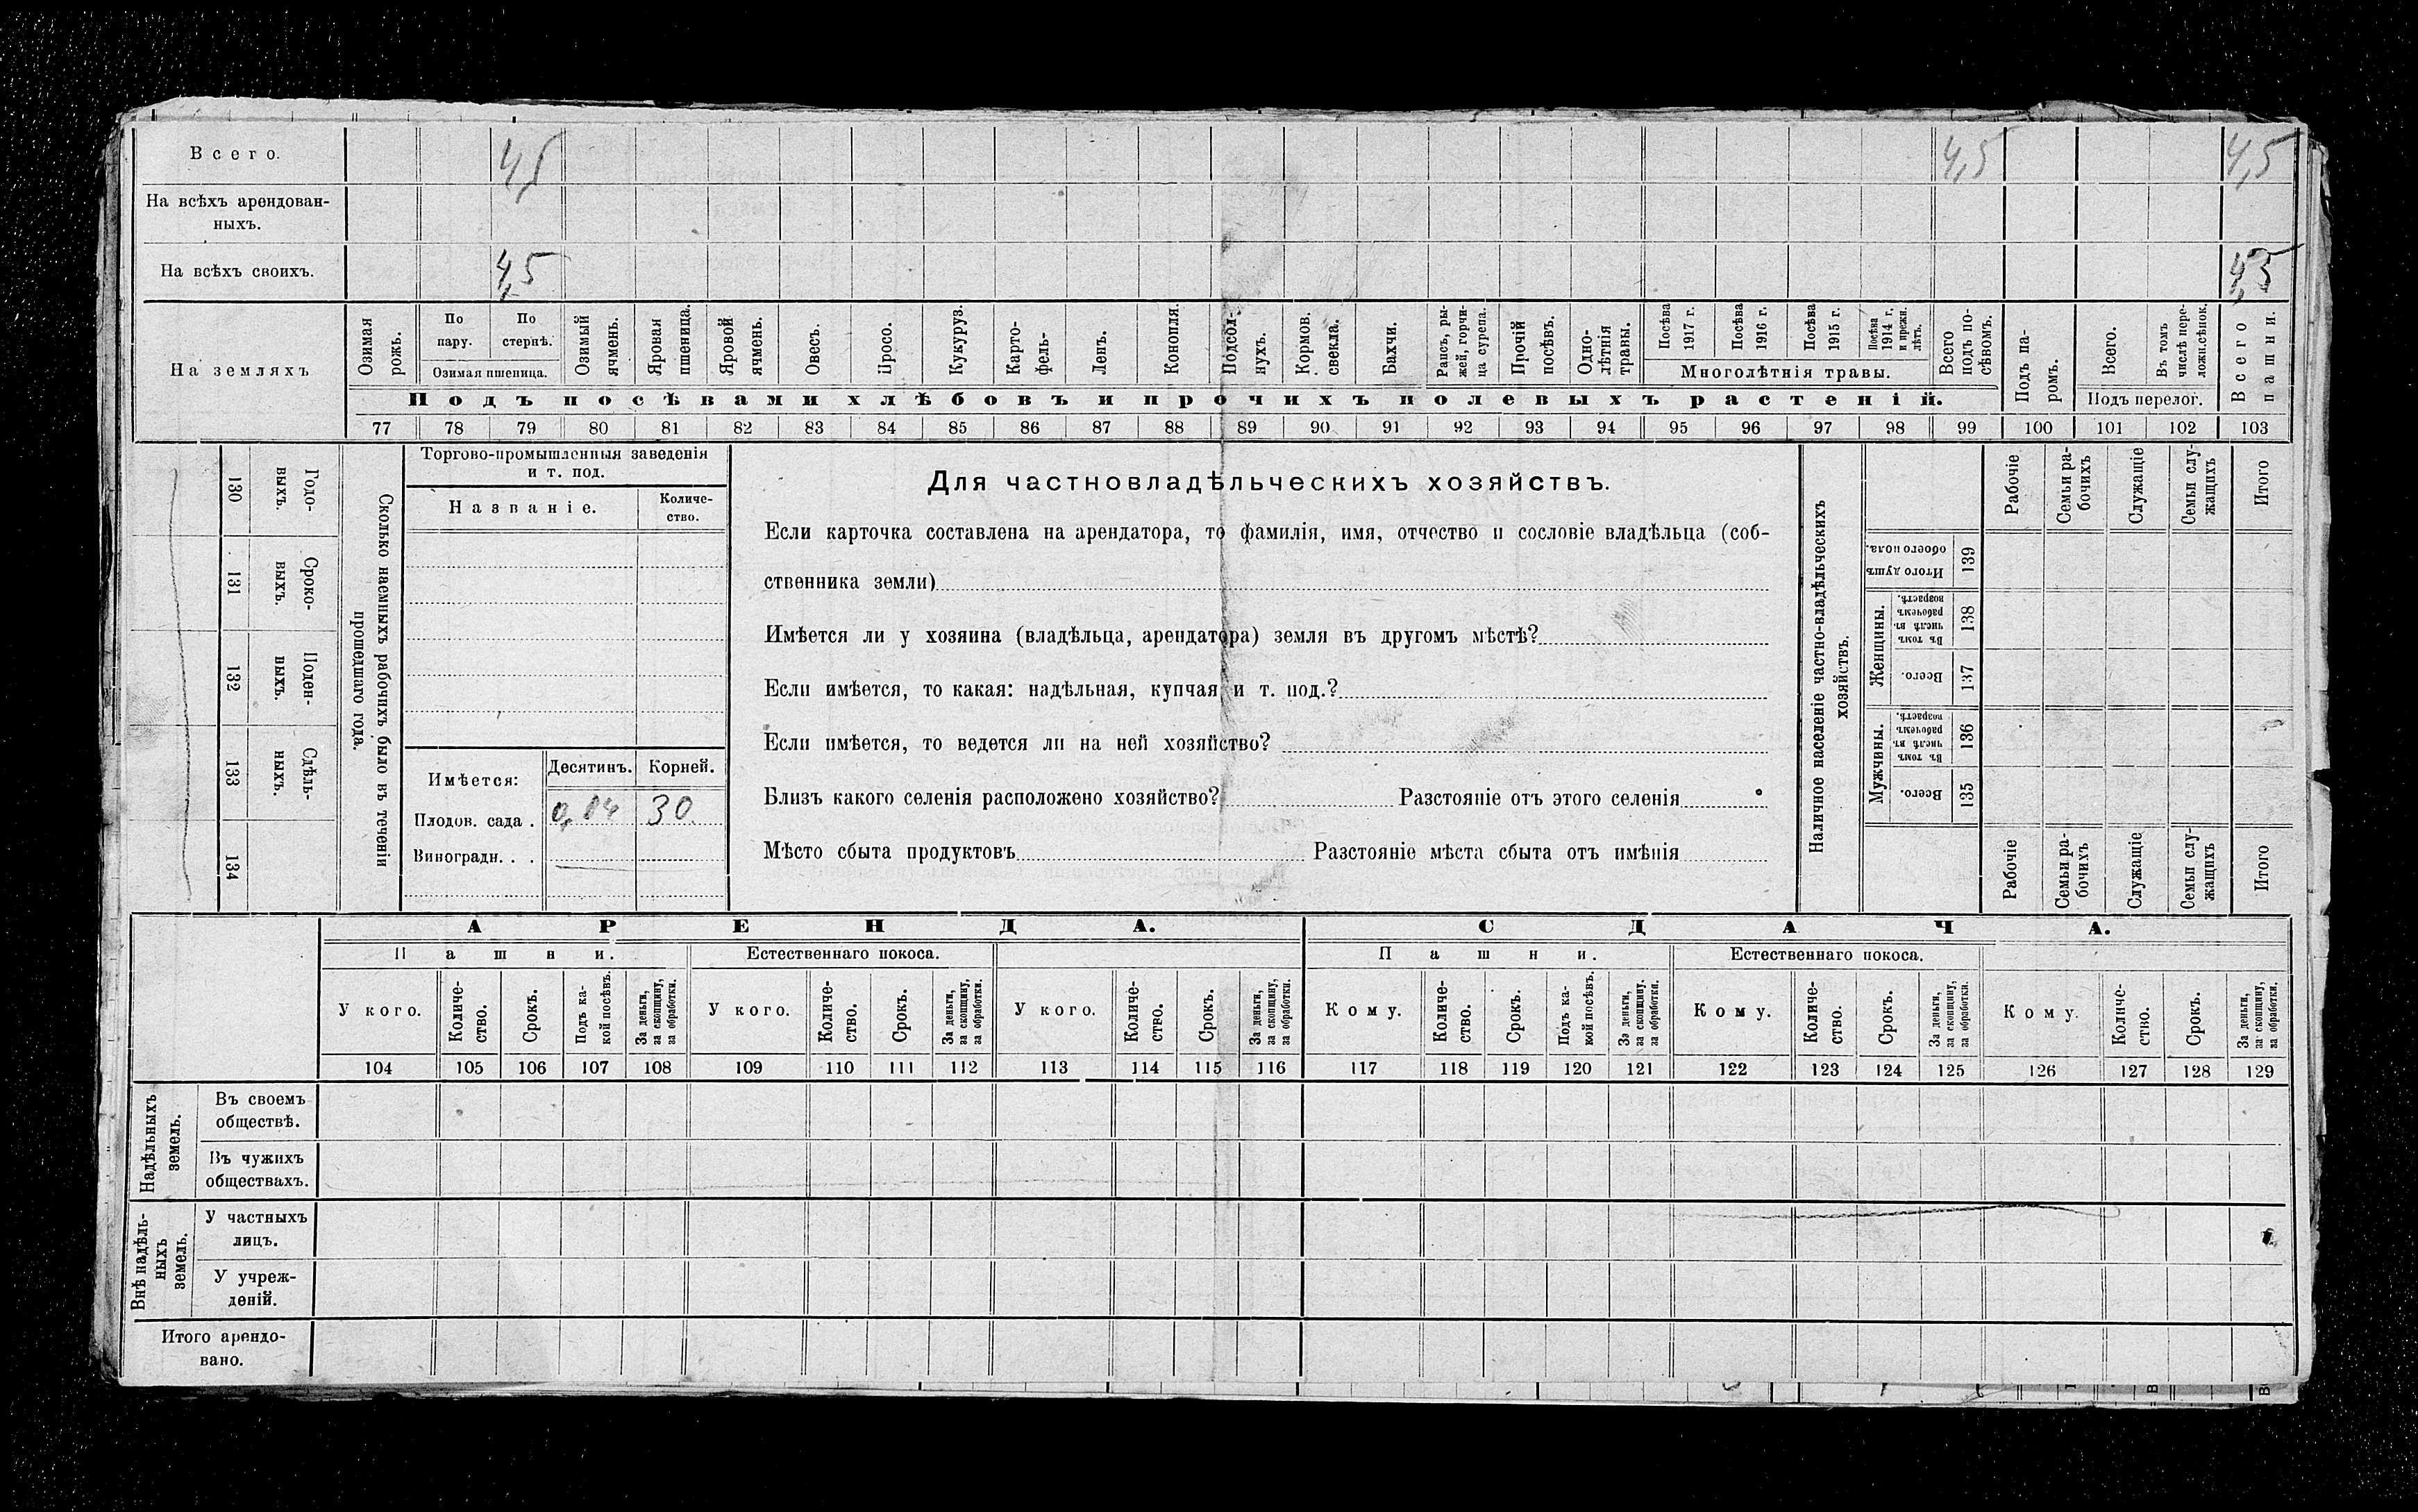 Всего. 4,5 4,5 4,5
На всѣхъ арендован-
ныхъ.
На всѣхъ своихъ. 4,5 4,5
На земляхъ
Озимая рожь.
По пару.
По стернѣ.
Озимая пшеница.
Озимый ячмень.
Яровая пшеница.
Яровой ячмень.
Овесъ.
Просо.
Кукуруз.
Карто-
фель.
Ленъ.
Конопля.
Подсол-
нухъ.
Кормов. свекла.
Бахчи.
Рапсъ, ры-
жей, горчи-
ца сурепа.
Прочій посѣвъ.
Одно-
лѣтнія травы.
Посѣва 1917 г.
Посѣва 1916 г.
Посѣва 1915 г.
Посѣва 1914 г. и прежн. лѣтъ.
Многолѣтнія травы.
Всего подъ по-
сѣвомъ.
Подъ па-
ромъ.
Всего.
Въ томъ числѣ пере-
ложн.сѣнок.
Подъ перелог.
Всего пашни.
Подъ посѣвами хлѣбовъ и прочихъ полевыхъ растеній.
77 78 79 80 81 82 83 84 85 86 87 88 89 90 91 92 93 94 95 96 97 98 99 100 101 102 103
130 Годо-
выхъ.
131 Сроко-
выхъ.
132 Поден-
ныхъ.
133 Сдѣль-
ныхъ.
134
Сколько наемныхъ рабочихъ было въ теченіи
прошедшаго года.
Торгово-промышленныя заведенія
и т. под.
Названіе. Количе-
ство.
Имѣется: Десятинъ. Корней.
Плодов. сада . 0,04 30
Виноградн. . .
Для частновладѣльческихъ хозяйствъ.
Если карточка составлена на арендатора, то фамилія, имя, отчество и сословіе владѣльца (соб-
ственника земли)
Имѣется ли у хозяина (владѣльца, арендатора) земля въ другомъ мѣстѣ?
Если имѣется, то какая: надѣльная, купчая и т. под.?
Если имѣется, то ведется ли на ней хозяйство?
Близъ какого селенія расположено хозяйство? Разстояніе отъ этого селенія
Мѣсто сбыта продуктовъ Разстояніе мѣста сбыта отъ имѣнія
Наличное населеніе частно-владѣльческихъ
хозяйствъ.
Рабочіе
Семьи ра-
бочихъ
Служащіе
Семьи слу-
жащихъ
Итого
Итого душъ обоего пола. 139
Женщины.
Въ томъ числѣ въ рабочемъ возрастѣ. 138
Всего. 137
Мужчины.
Въ томъ числѣ въ рабочемъ возрастѣ. 136
Всего. 135
Рабочіе
Семьи ра-
бочихъ
Служащіе
Семьи слу-
жащихъ
Итого
АРЕНДА. СДАЧА.
Пашни. Естественнаго покоса. Пашни. Естественнаго покоса.
У кого. Количе-
ство. Срокъ. Подъ ка-
кой посѣвъ. За деньги, за скопщину, за обработки.
У кого. Количе-
ство. Срокъ. За деньги, за скопщину, за обработки.
У кого. Количе-
ство. Срокъ. За деньги, за скопщину, за обработки.
Кому. Количе-
ство. Срокъ. Подъ ка-
кой посѣвъ. За деньги, за скопщину, за обработки.
Кому. Количе-
ство. Срокъ. За деньги, за скопщину, за обработки.
Кому. Количе-
ство. Срокъ. За деньги, за скопщину, за обработки.
104 105 106 107 108 109 110 111 112 113 114 115 116 117 118 119 120 121 122 123 124 125 126 127 128 129
Надѣльныхъ
земель.
Въ своемъ
обществѣ.
Въ чужихъ
обществахъ.
Внѣ надѣль-
ныхъ
земель.
У частныхъ
лицъ.
У учреж-
деній.
Итого арендо-
вано.